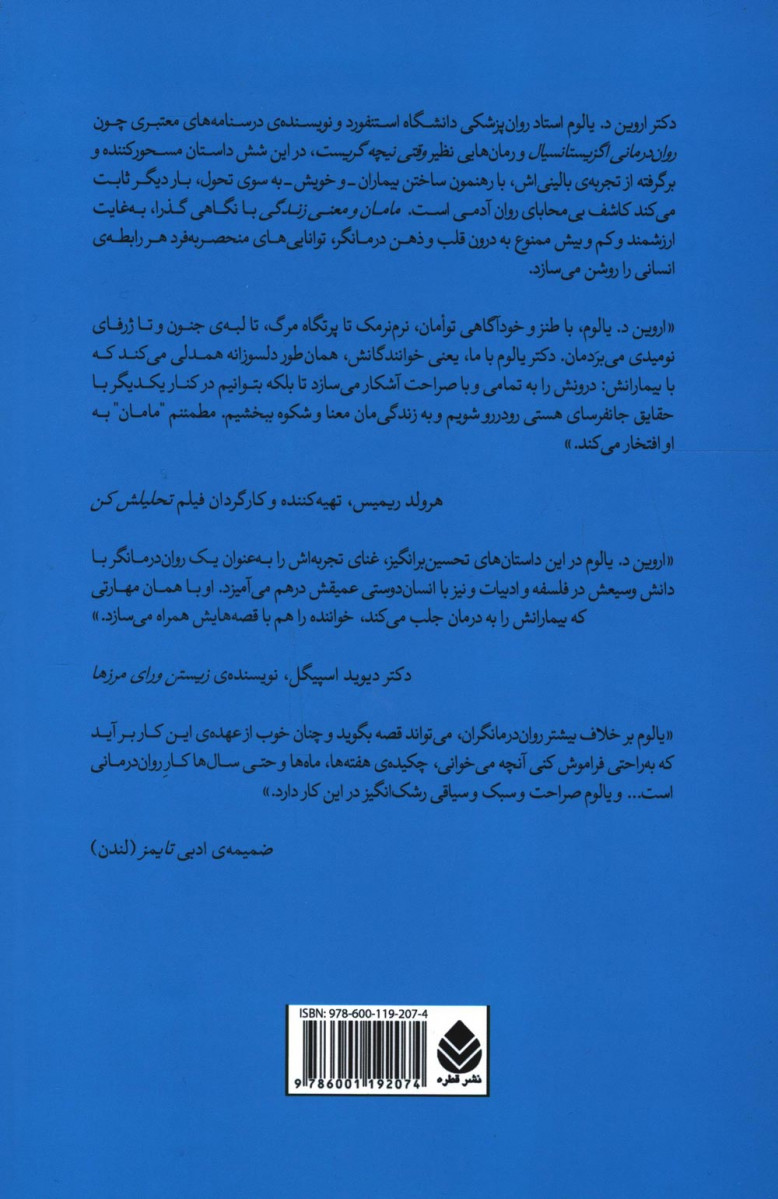 دکتر اروین د. یالوم استاد روان‌پزشکی دانشگاه استنفورد و نویسنده‌ی درسنامه‌های معتبری چون
روان‌درمانی اگزیستانسیال و رمان‌هایی نظیر وقتی نیچه گریست، در این شش داستان مسحورکننده و
برگرفته از تجربه‌ی بالینی‌اش، با رهنمون ساختن بیماران ـ و خویش ـ به سوی تحول، بار دیگر ثابت
می‌کند کاشف بی‌محابای روان آدمی است. مامان و معنی زندگی با نگاهی گذرا، به‌غایت
ارزشمند و کم و بیش ممنوع به درون قلب و ذهن درمانگر، توانایی‌های منحصربه‌فرد هر رابطه‌ی
انسانی را روشن می‌سازد.
«اروین د. یالوم، با طنز و خودآگاهی توأمان، نرم‌نرمک تا پرتگاه مرگ، تا لبه‌ی جنون و تا ژرفای
نومیدی می‌بَردمان. دکتر یالوم با ما، یعنی خوانندگانش، همان‌طور دلسوزانه همدلی می‌کند که
با بیمارانش: درونش را به تمامی و با صراحت آشکار می‌سازد تا بلکه بتوانیم در کنار یکدیگر با
حقایق جانفرسای هستی رودررو شویم و به زندگی‌مان معنا و شکوه ببخشیم. مطمئنم "مامان" به
او افتخار می‌کند.»
هرولد ریمیس، تهیه‌کننده و کارگردان فیلم تحلیلش کن
«اروین د. یالوم در این داستان‌های تحسین‌برانگیز، غنای تجربه‌اش را به‌عنوان یک روان‌درمانگر با
دانش وسیعش در فلسفه و ادبیات و نیز با انسان‌دوستی عمیقش درهم می‌آمیزد. او با همان مهارتی
که بیمارانش را به درمان جلب می‌کند، خواننده را هم با قصه‌هایش همراه می‌سازد.»
دکتر دیوید اسپیگل، نویسنده‌ی زیستن ورای مرزها
«یالوم بر خلاف بیشتر روان‌درمانگران، می‌تواند قصه بگوید و چنان خوب از عهده‌ی این کار بر آید
که به‌راحتی فراموش کنی آنچه می‌خوانی، چکیده‌ی هفته‌ها، ماه‌ها و حتی سال‌ها کارِ روان‌درمانی
است... و یالوم صراحت و سبک و سیاقی رشک‌انگیز در این کار دارد.»
ضمیمه‌ی ادبی تایمز (لندن)
ISBN: 978-600-119-207-4
9 786001 192074
نشر قطره